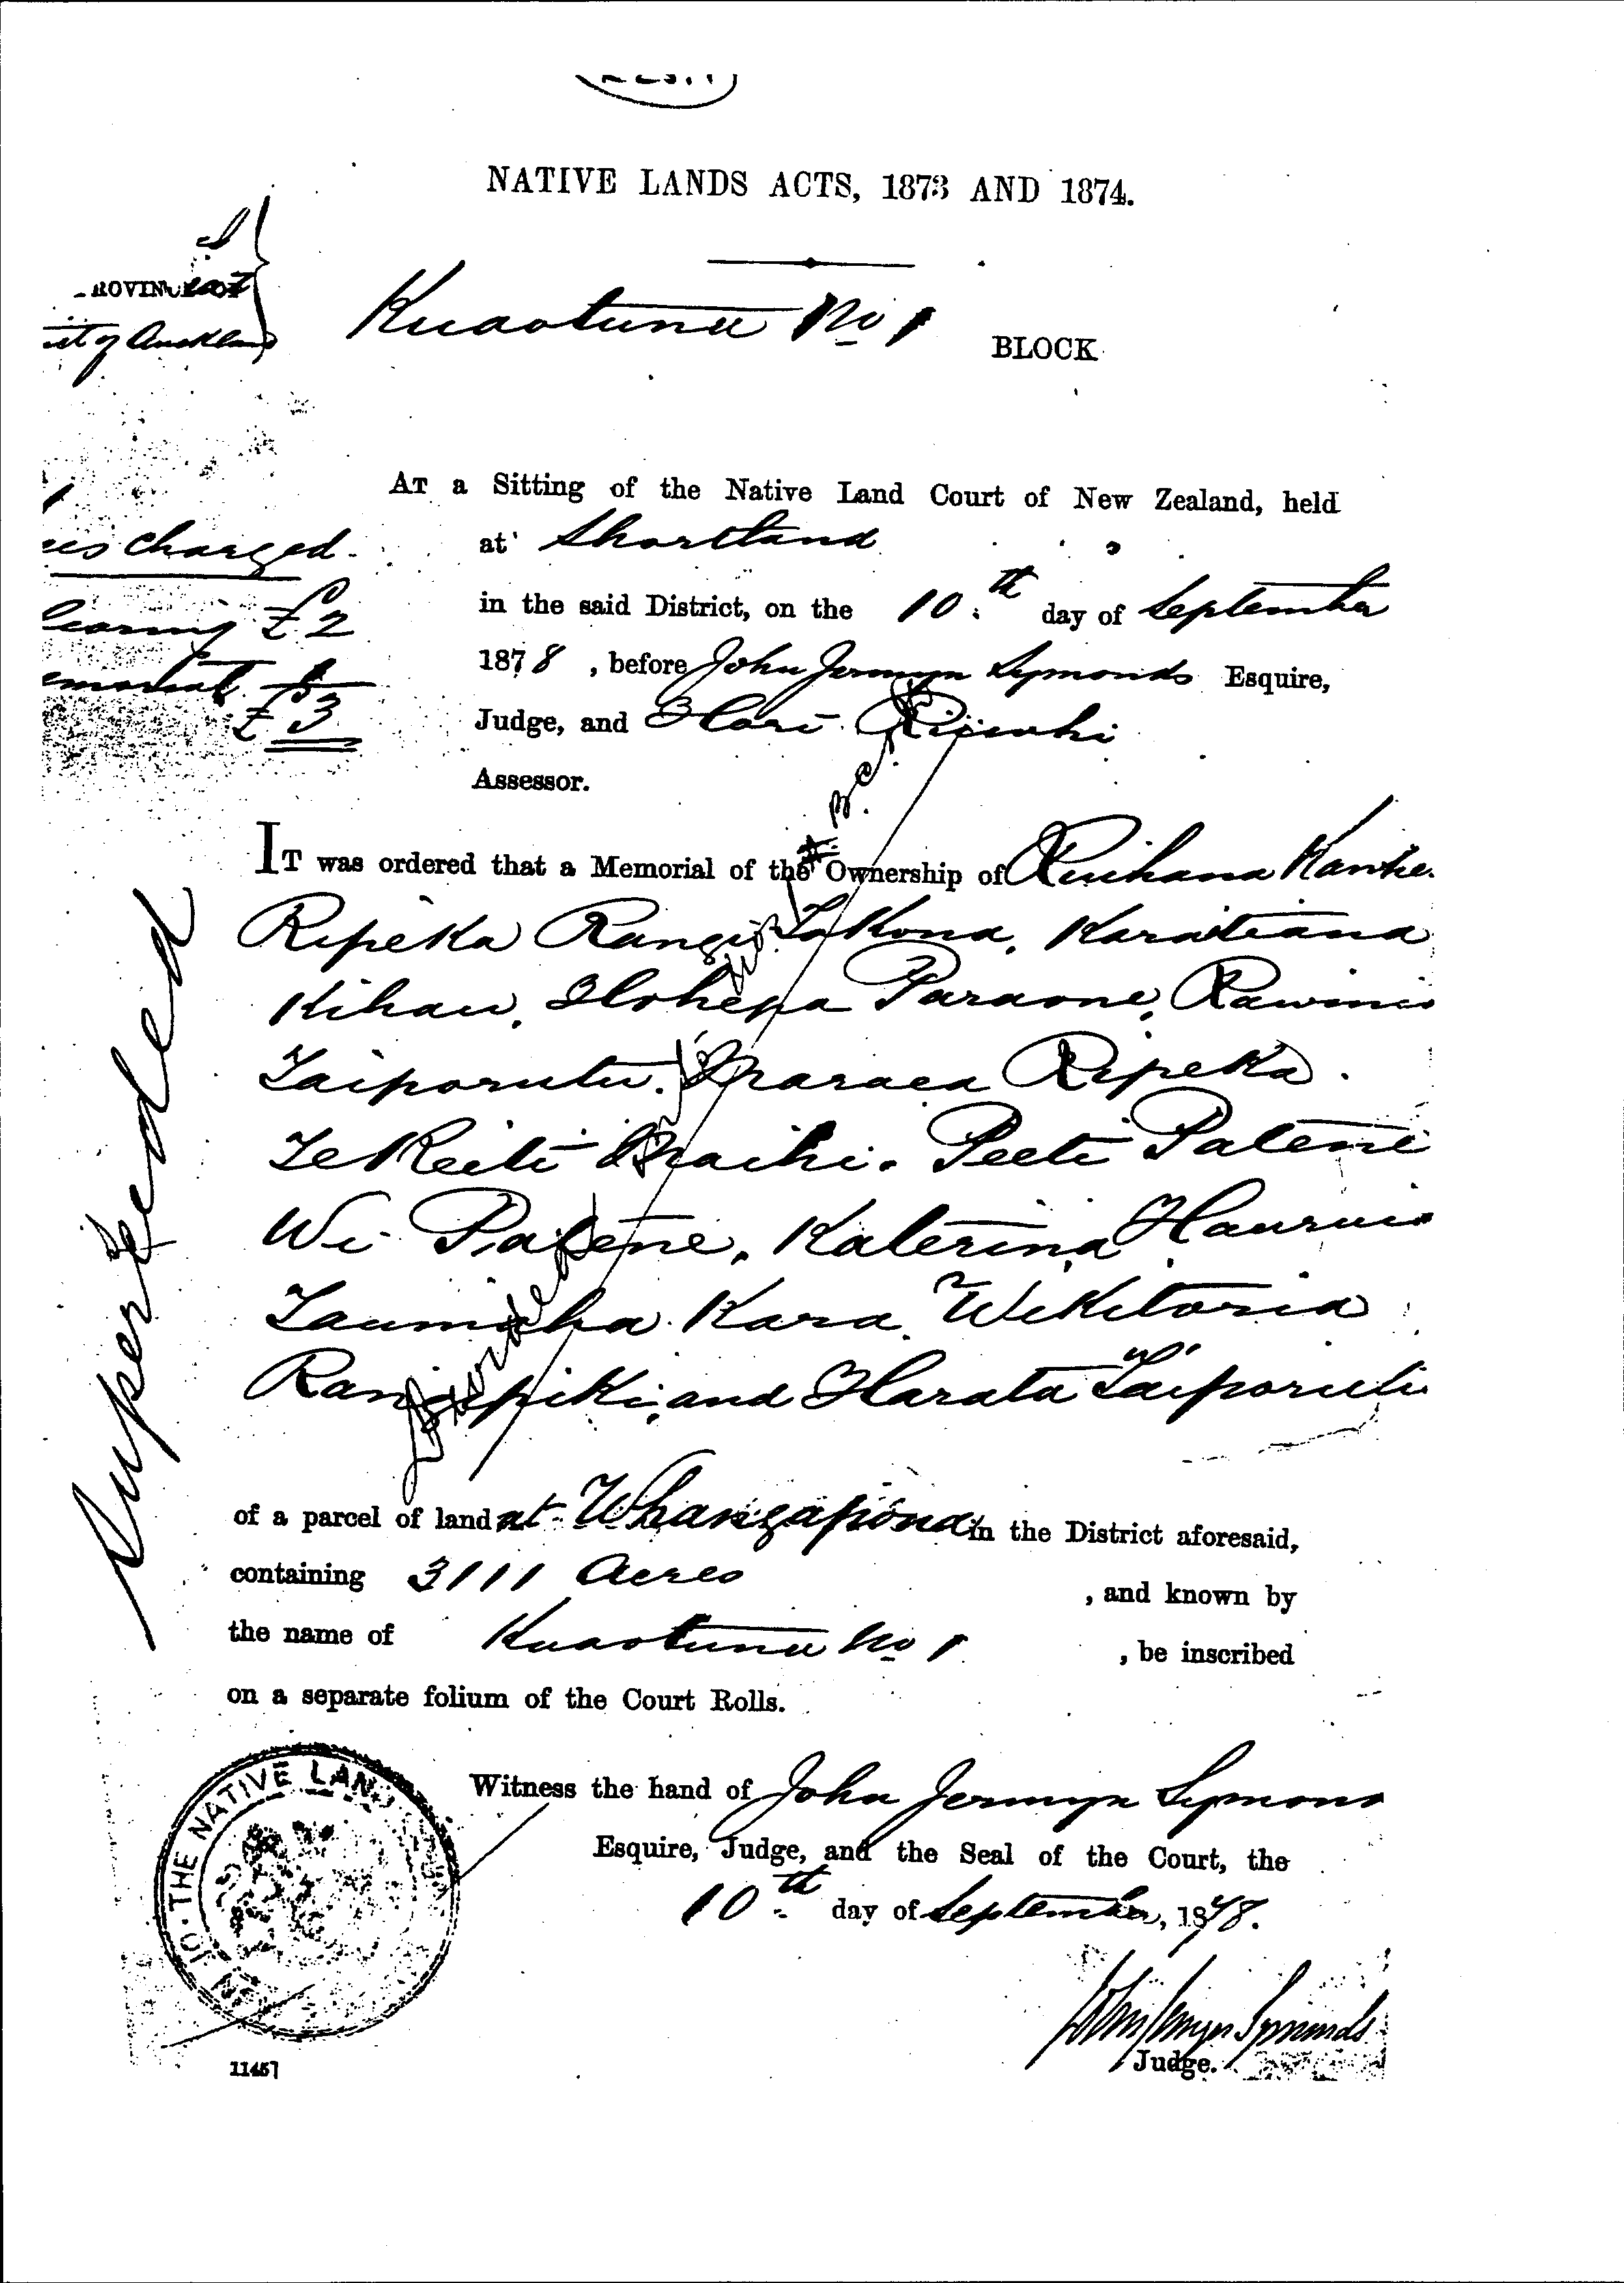 NATIVE LANDS ACTS, 1873 AND 1874.
Kuaotunu No 1 BLOCK
of Auckland
AT a Sitting of the Native Land Court of New Zealand, held
at Shortland
charged.
in the said District, on the 10th day of September
£2
1878, before John Jermyn Symonds Esquire,
£3
Judge, and Hori
Assessor.
IT was ordered that a Memorial of the Ownership of Ruihana Kawhe.
Ripeka Rangi Karatiana
Kihau, Hohepa Paraone, Rawinia
Taiporutu. Maraea Ripeka.
Te Reiti Maihi. Peeti Patene
Wi Patene, Katerina Hauruia
Kara. Wikitoria
Rangipiki, and Harata Taiporutu
Superseded
of a parcel of land at Whangapoua in the District aforesaid,
containing 3111 Acres, and known by
the name of Kuaotunu No 1, be inscribed
on a separate folium of the Court Rolls.
THE NATIVE LAND
Witness the hand of John Jermyn Symonds
Esquire, Judge, and the Seal of the Court, the
10th day of September, 1878.
John Jermyn Symonds
Judge.
11457